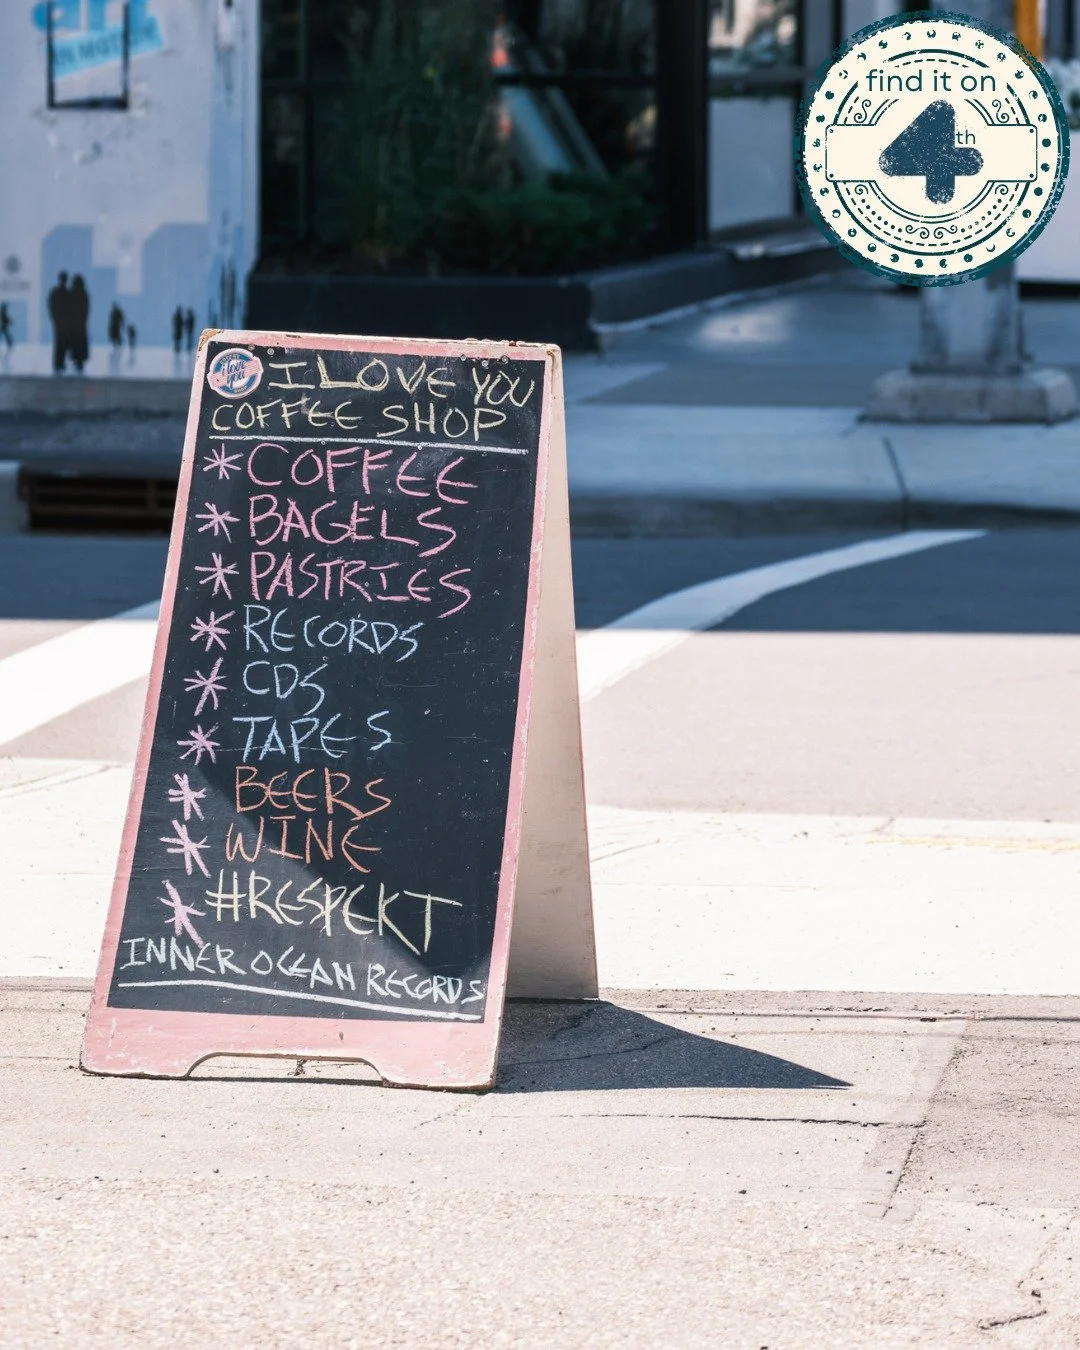 find it on
4th
IN MOTION
I LOVE YOU
COFFEE SHOP
* COFFEE
* BAGELS
* PASTRIES
* RECORDS
* CDS
* TAPES
* BEERS
* WINE
* #RESPEKT
INNER OCEAN RECORDS
i love
you